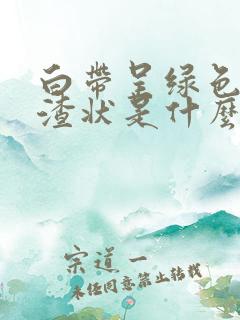 白带呈绿色
渣状是什麽
宗道一
未经同意禁止转载